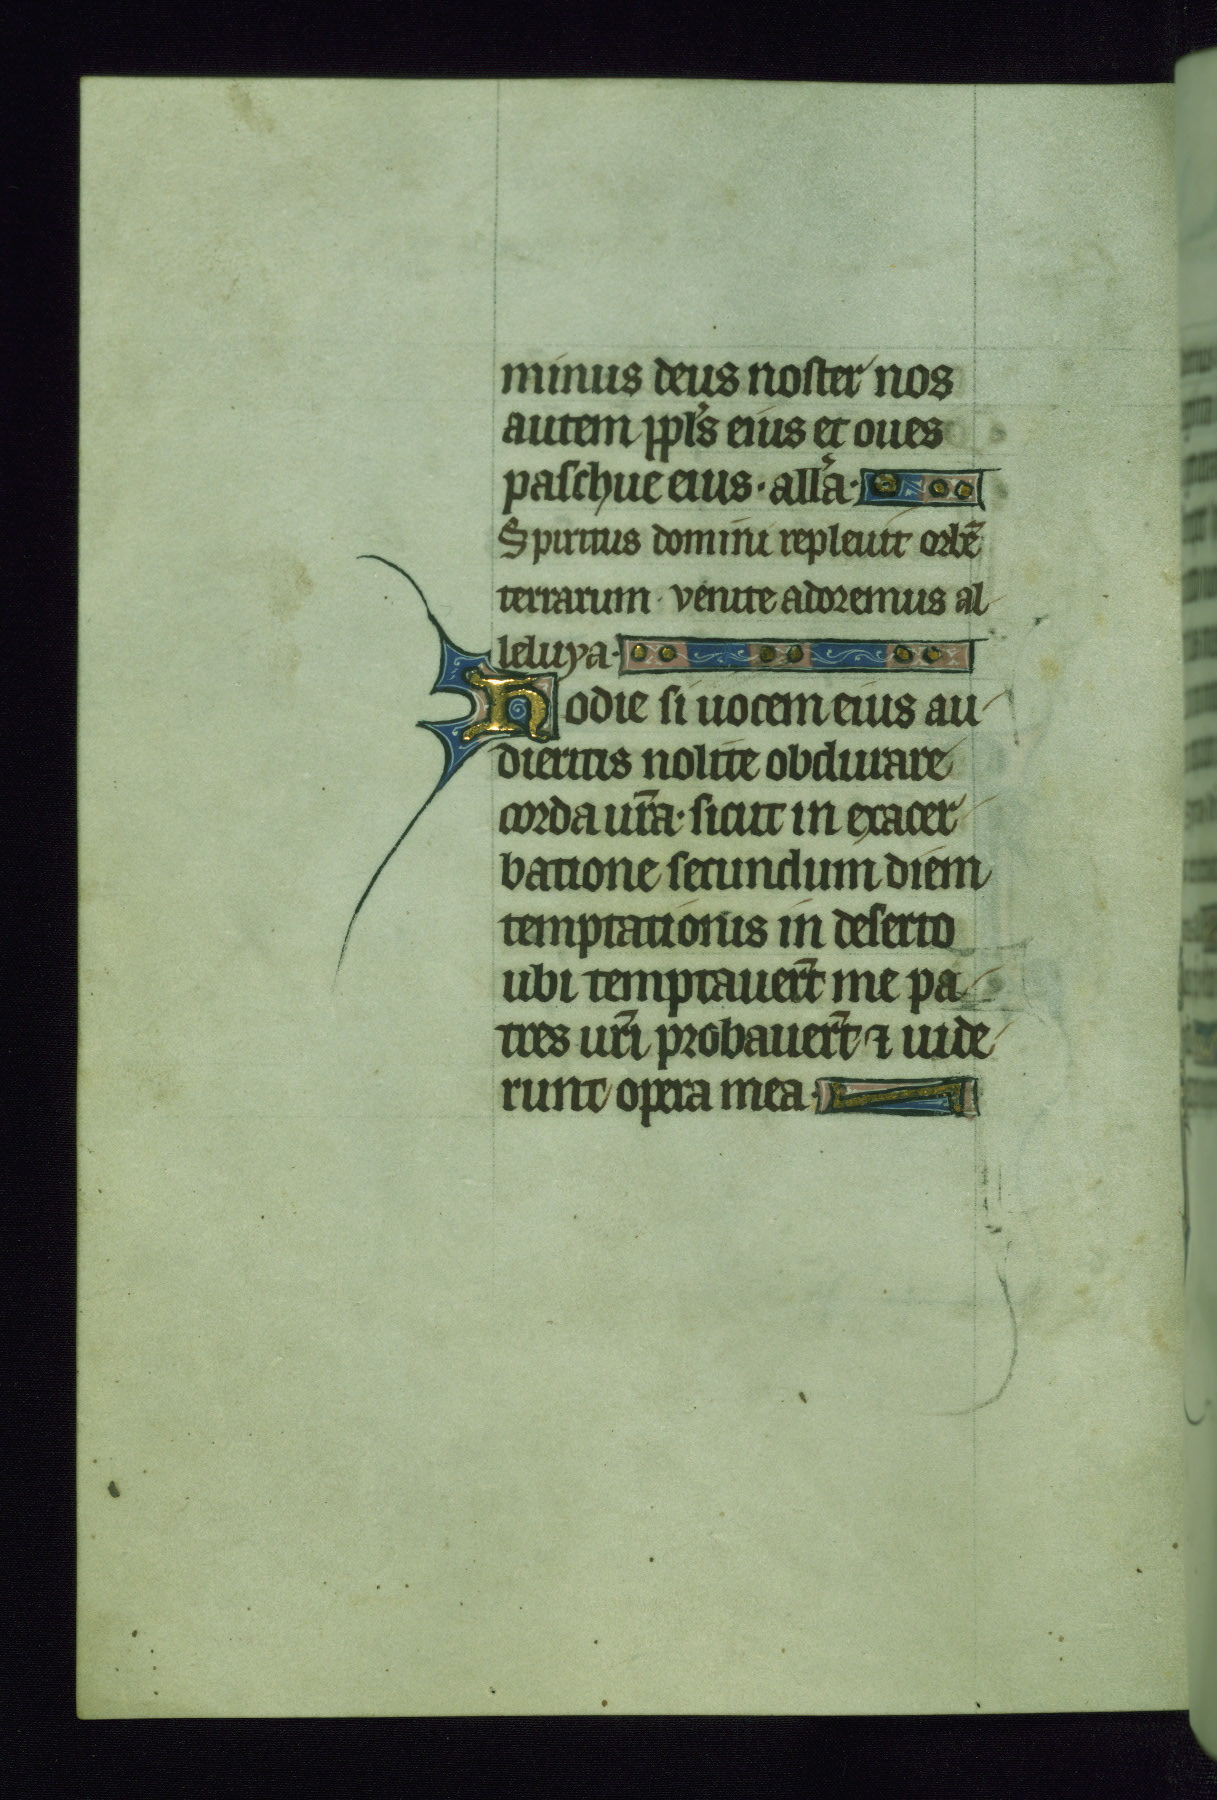 minus deus noster nos
autem ppl's eius et oues
paschue eius · all'a ·
Spiritus domini repleuit orbē
terrarum · venite adoremus al
leluya ·
Hodie si uocem eius au
dieritis nolite obdurare
corda ur̄a · sicut in exacer
batione secundum diem
temptationis in deserto
ubi temptauer̄t me pa
tres ur̄i probauer̄t ⁊ uide
runt opera mea ·